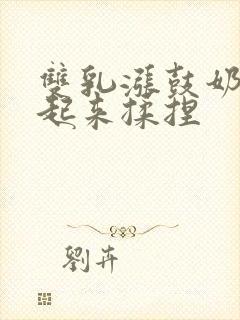 雙乳漲鼓奶
起来揉捏
劉卉